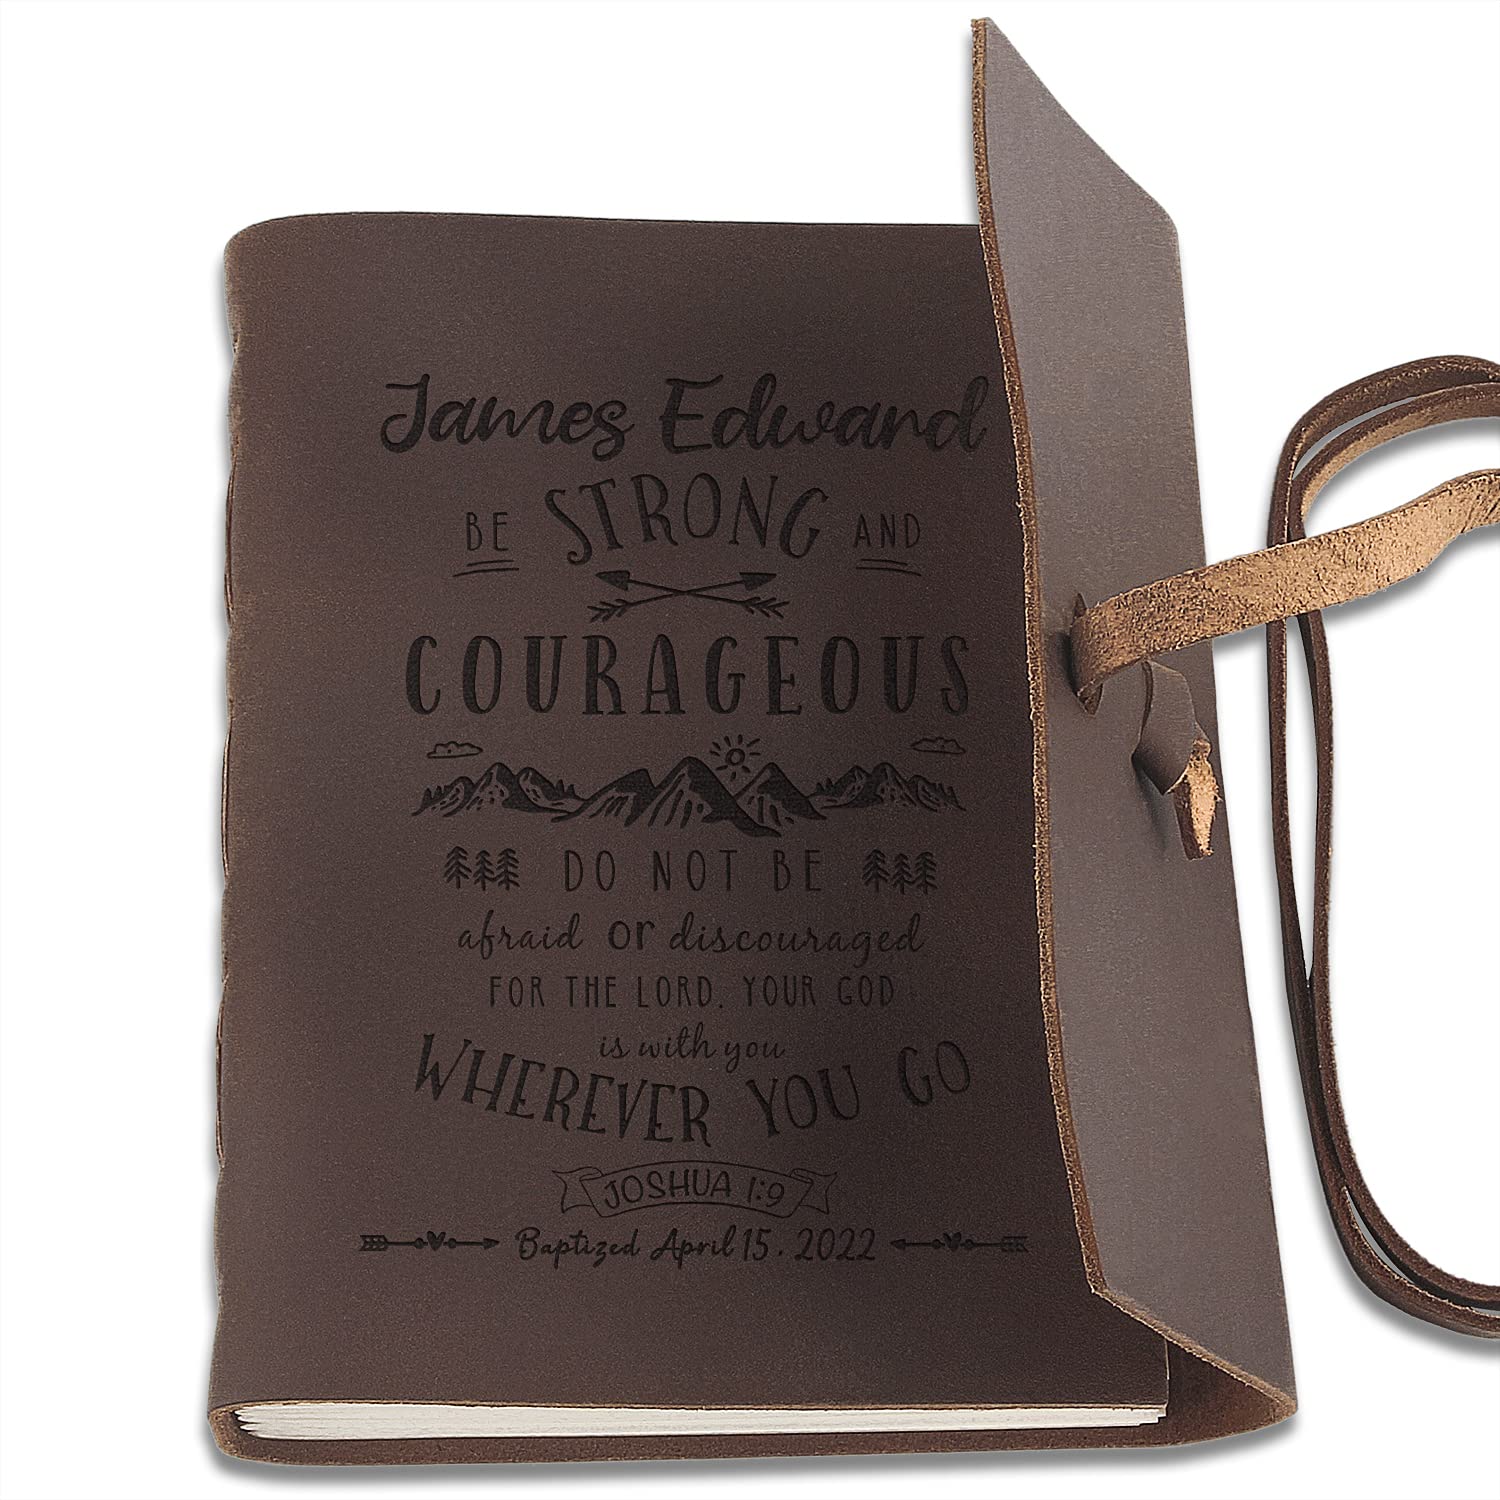 James Edward
BE STRONG AND
COURAGEOUS
DO NOT BE
afraid or discouraged
FOR THE LORD, YOUR GOD
is with you
WHEREVER YOU GO
JOSHUA 1:9
Baptized April 15 . 2022